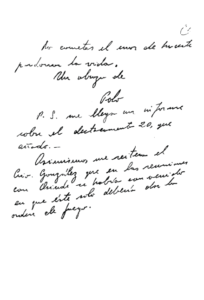 No cometas el error de hacerte
perdonar la vida.
Un abrazo de
Polo
P.S. me llega un informe
sobre el destacamento 20, que
añado.-
Asimismo me reitera el
González que en las reuniones
con se había convenido
en que éste solo debería dar la
orden de fuego.